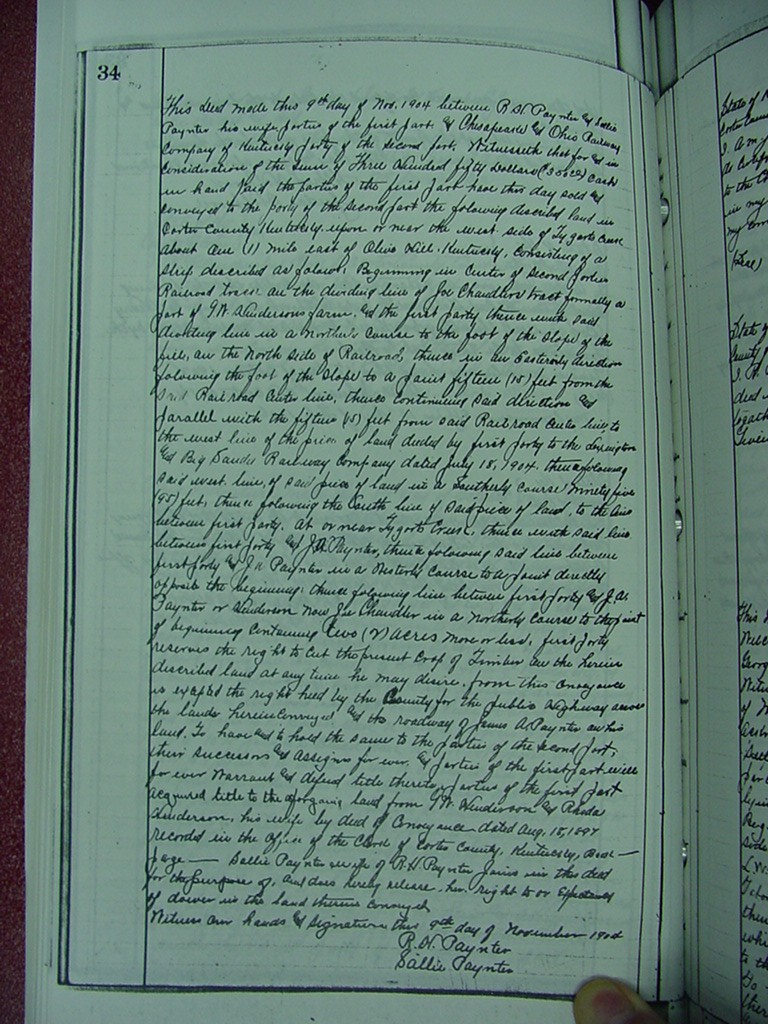 34
This deed made this 9th day of Nov. 1904 between R.H. Paynter & Sallie
Paynter his wife parties of the first part & Chesapeake & Ohio Railway
Company of Kentucky party of the second part. Witnesseth that for & in
Consideration of the sum of Three Hundred fifty Dollars Cash
in hand paid the parties of the first part have this day sold &
Conveyed to the party of the second part the folowing described land in
Carter County Kentucky upon or near the west side of Tygarts Creek
about One (1) mile east of Olive Hill. Kentucky, Consisting of a
strip described as folows. Beginning in Center of second parties
Railroad track on the dividing line of Joe Chandlers tract formally a
part of G.W. Hendersons farm. & the first party thence with said
dividing line in a northerly Course to the foot of the slope of the
fill, on the North side of Railroad, thence in an Easterly direction
folowing the foot of the slope to a point fifteen (15) feet from the
said Railroad Center line, thence continuing said direction &
parallel with the fifteen (15) feet from said Railroad Center line to
the west line of the piece of land deeded by first party to the Lexington
& Big Sandy Railway Company dated July 18, 1904. thence folowing
said west line, of said piece of land in a Southerly Course Ninety five
(95) feet, thence folowing the South line of said piece of land, to the line
between first party. At or near Tygarts Creek, thence with said line
between first party & J.A. Paynter, thence folowing said line between
first party & J.A. Paynter in a Westerly Course to a point directly
opposite the beginning: thence folowing line between first party & J.A.
Paynter or Henderson now Joe Chandler in a Northerly Course to the point
of beginning Containing two (2) Acres more or less. first party
reserves the right to Cut the present Crop of Timber on the herein
described land at any time he may desire. from this Conveyance
is excepted the right held by the County for the public Highway across
the lands herein Conveyed & the roadway of James A. Paynter on his
land. To have & to hold the same to the parties of the second part,
their successors & assigns for ever. & parties of the first part will
for ever Warrant & defend title thereto parties of the first part
acquired title to the land from G.W. Henderson &
Henderson, his wife by deed of Conveyance dated Aug. 18, 1897
recorded in the Office of the Clerk of Carter County, Kentucky, Book —
page — Sallie Paynter wife of R.H. Paynter joins in this deed
for the purpose of, and does hereby release her right to or Expectancy
of dower in the land therein Conveyed
Witness our hands & signatures this 9th day of November 1904
R.H. Paynter
Sallie Paynter